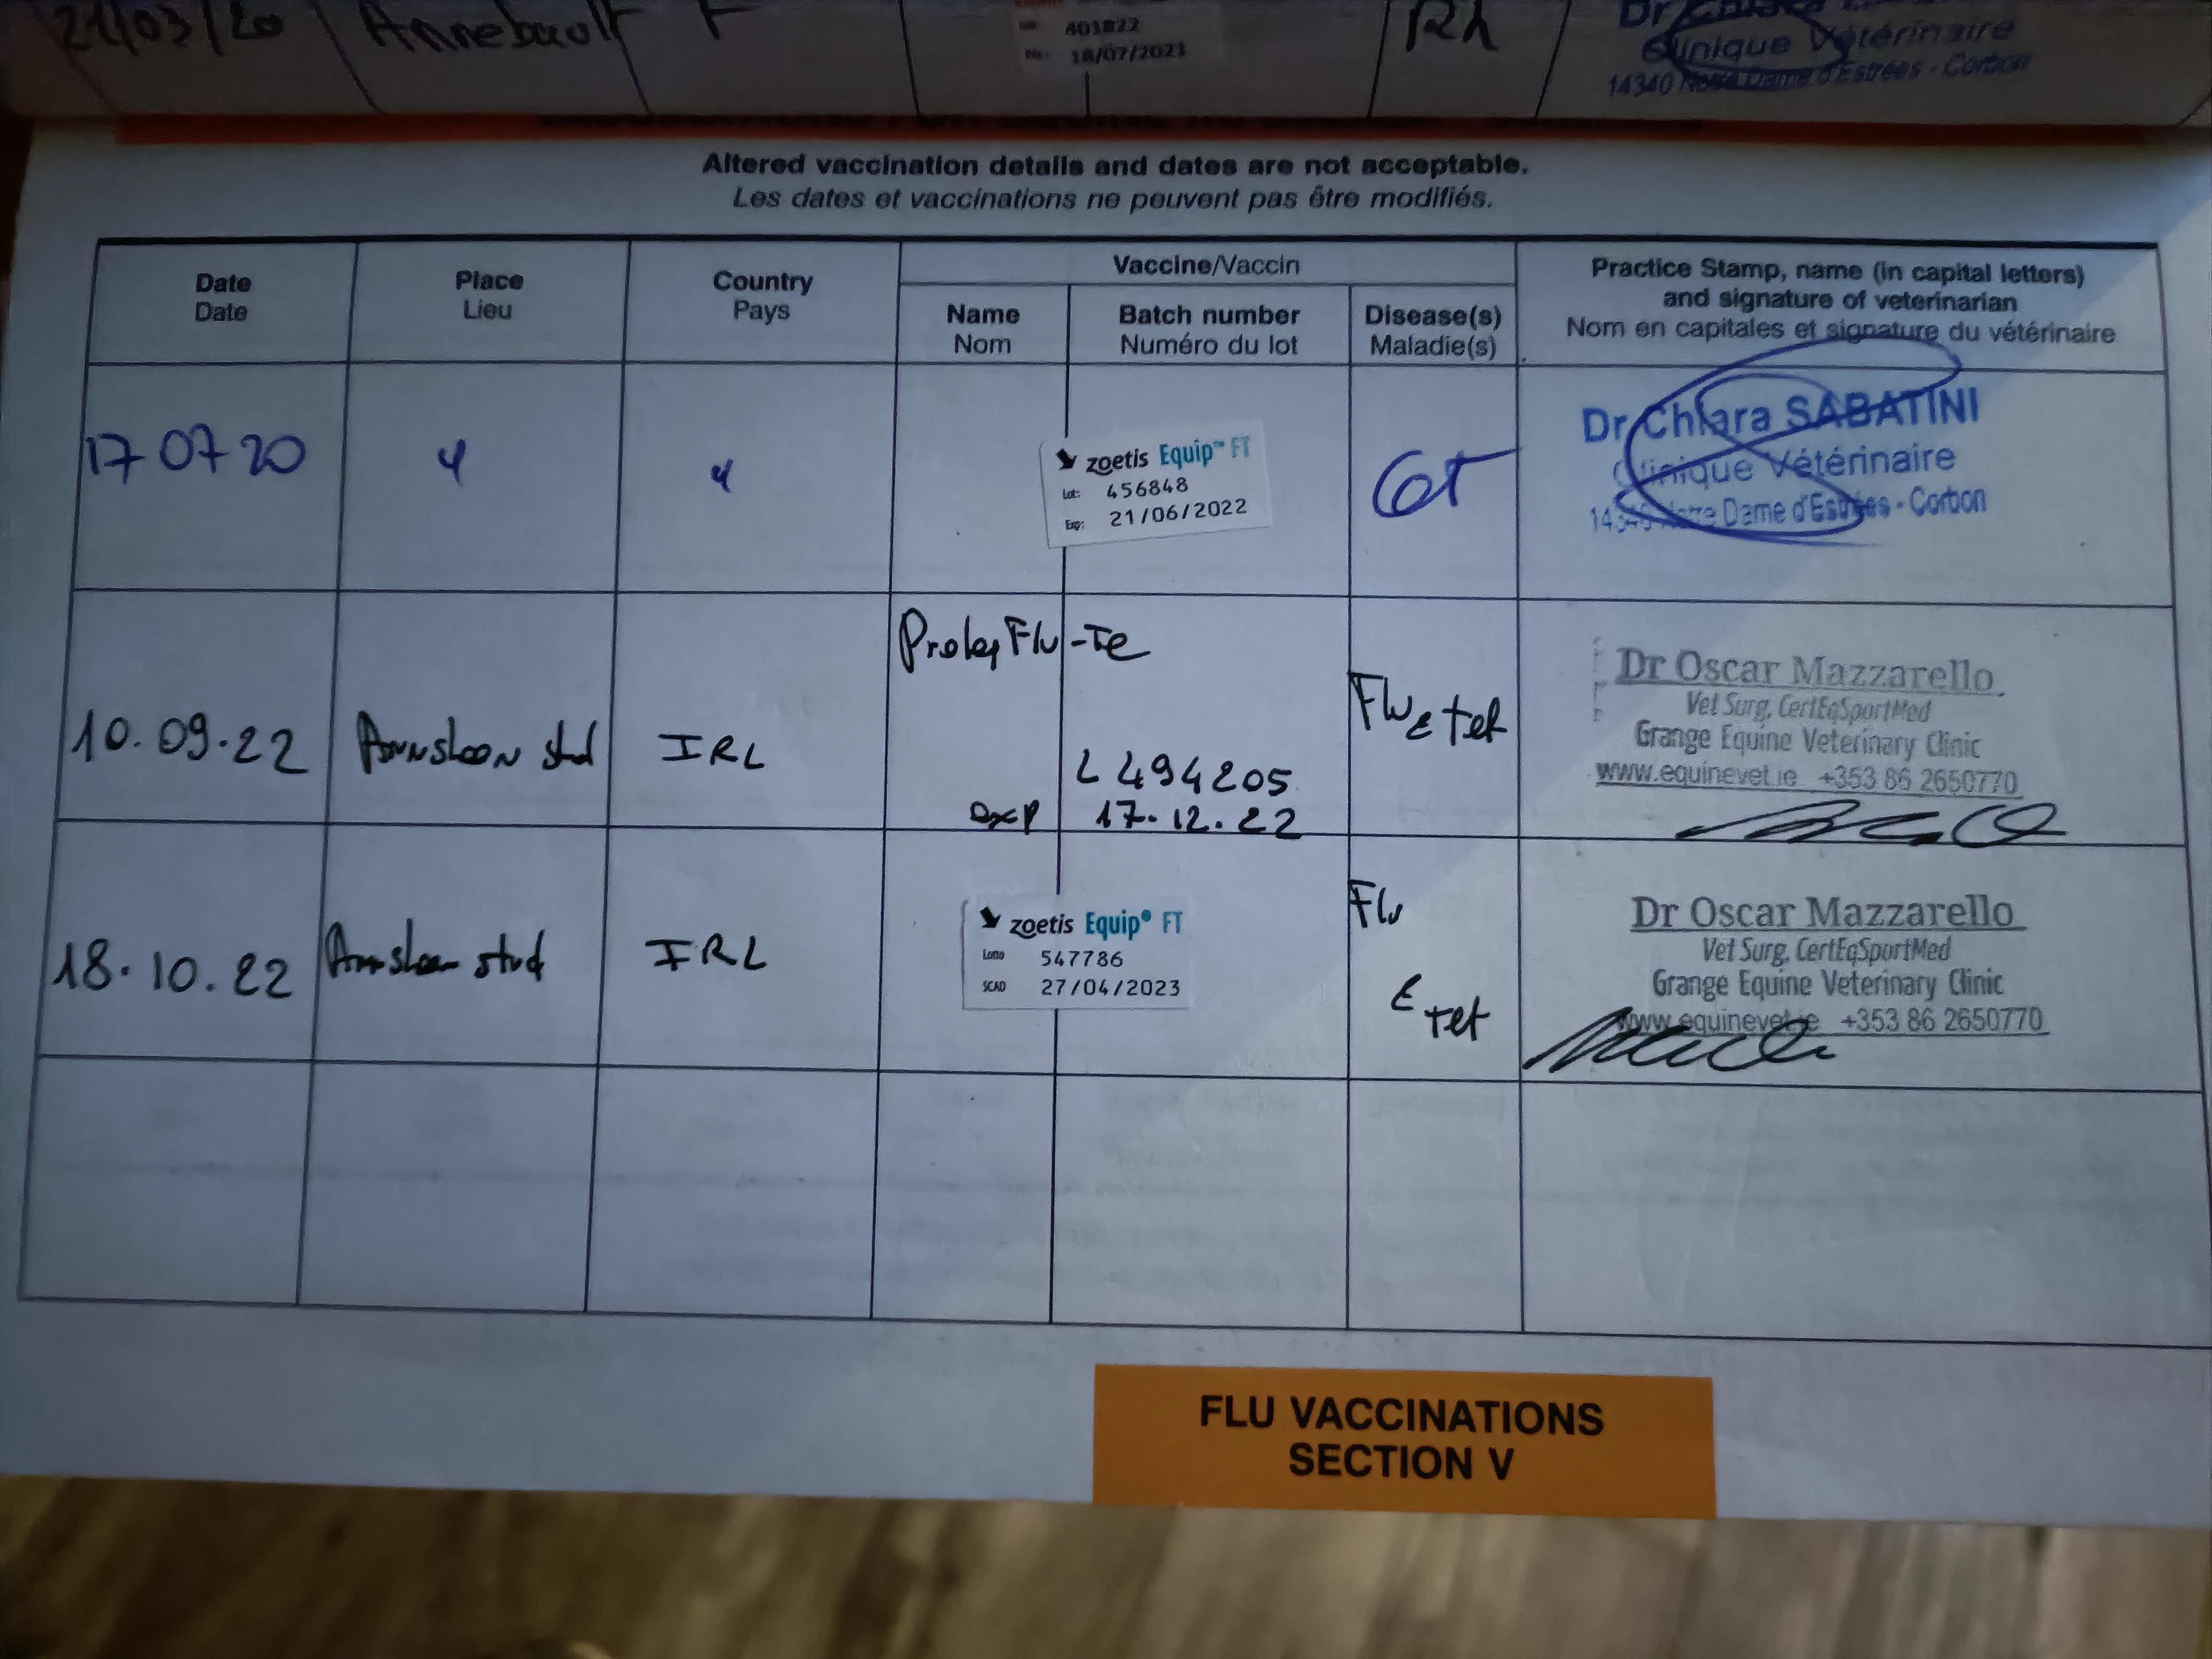 21/03/20 Annebault F
401822
18/07/2021
Rh
Dr Chiara
Clinique Vétérinaire
14340 Notre Dame d'Estrées - Corbon
Altered vaccination details and dates are not acceptable.
Les dates et vaccinations ne peuvent pas être modifiés.
Date
Date
Place
Lieu
Country
Pays
Vaccine/Vaccin
Name
Nom
Batch number
Numéro du lot
Disease(s)
Maladie(s)
Practice Stamp, name (in capital letters)
and signature of veterinarian
Nom en capitales et signature du vétérinaire
17 07 20
zoetis Equip™ FT
Lot: 456848
Exp: 21/06/2022
GT
Dr Chiara SABATINI
Clinique Vétérinaire
14340 Notre Dame d'Estrées - Corbon
10.09.22
stud
IRL
Flu-Te
L 494205
exp 17.12.22
Flu
E tet
Dr Oscar Mazzarello
Vet Surg, CertEqSportMed
Grange Equine Veterinary Clinic
www.equinevet.ie +353 86 2650770
18.10.22
stud
IRL
zoetis Equip® FT
Lotto 547786
SCAD 27/04/2023
Flu
E tet
Dr Oscar Mazzarello
Vet Surg, CertEqSportMed
Grange Equine Veterinary Clinic
www.equinevet.ie +353 86 2650770
FLU VACCINATIONS
SECTION V